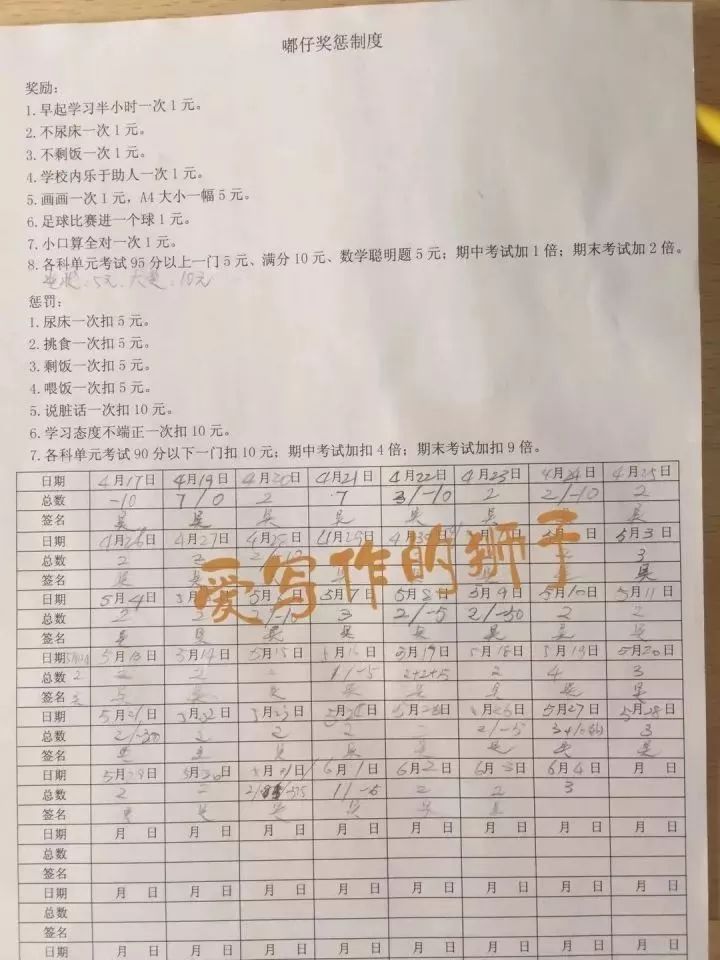 嘟仔奖惩制度
奖励:
1. 早起学习半小时一次 1 元。
2. 不尿床一次 1 元。
3. 不剩饭一次 1 元。
4. 学校内乐于助人一次 1 元。
5. 画画一次 1 元，A4 大小一幅 5 元。
6. 足球比赛进一个球 1 元。
7. 小口算全对一次 1 元。
8. 各科单元考试 95 分以上一门 5 元、满分 10 元、数学聪明题 5 元；期中考试加 1 倍；期末考试加 2 倍。
5元、10元
惩罚:
1. 尿床一次扣 5 元。
2. 挑食一次扣 5 元。
3. 剩饭一次扣 5 元。
4. 喂饭一次扣 5 元。
5. 说脏话一次扣 10 元。
6. 学习态度不端正一次扣 10 元。
7. 各科单元考试 90 分以下一门扣 10 元；期中考试加扣 4 倍；期末考试加扣 9 倍。
日期 4月17日 4月19日 4月20日 4月21日 4月22日 4月23日 4月24日 4月25日
总数 -10 7/0 2 7 3/-10 2 2/-10 2
签名 吴 吴 吴 吴 吴 吴 吴
日期 4月26日 4月27日 4月28日 4月29日 4月30日 5月3日
总数 2 2 3
签名 吴 吴 吴
爱写作的狮子
日期 5月4日 5月7日 5月8日 5月9日 5月10日 5月11日
总数 2 2 2/-10 3 2/-5 2/-50 2 2
签名 吴 吴 吴 吴 吴 吴 吴 吴
日期 5月13日 5月14日 5月15日 5月18日 5月19日 5月20日
总数 2 2 1/-5 2+2+5 2 4 3
签名 吴 吴 吴 吴 吴
日期 5月21日 5月22日 5月23日 5月27日 5月28日
总数 2 2 2 2/-5 3
签名 吴 吴 吴 吴 吴
日期 5月29日 5月30日 5月31日 6月1日 6月2日 6月3日 6月4日 月 日
总数 2 2 1/-5 2 2 3
签名 吴 吴 吴 吴 吴 吴
日期 月 日 月 日 月 日 月 日 月 日 月 日 月 日 月 日
总数
签名
日期 月 日 月 日 月 日 月 日 月 日 月 日 月 日 月 日
总数
签名
日期 月 日 月 日 月 日 月 日 月 日 月 日 月 日 月 日